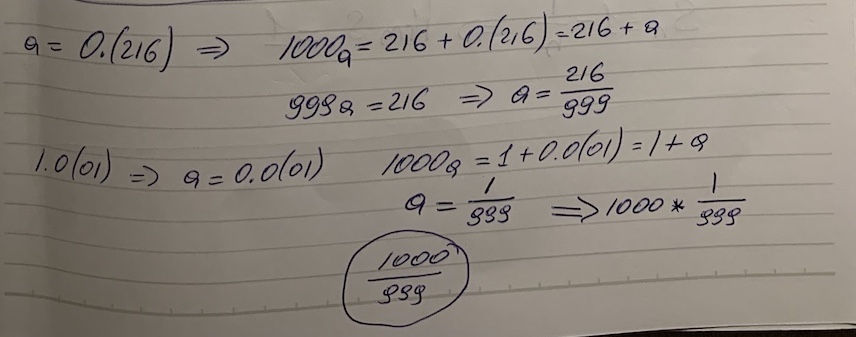 a = 0.(216) ⇒ 1000a = 216 + 0.(216) = 216 + a
999a = 216 ⇒ a = 216/999
1.0(01) ⇒ a = 0.0(01) 1000a = 1 + 0.0(01) = 1 + a
a = 1/999 ⇒ 1000 * 1/999
1000/999